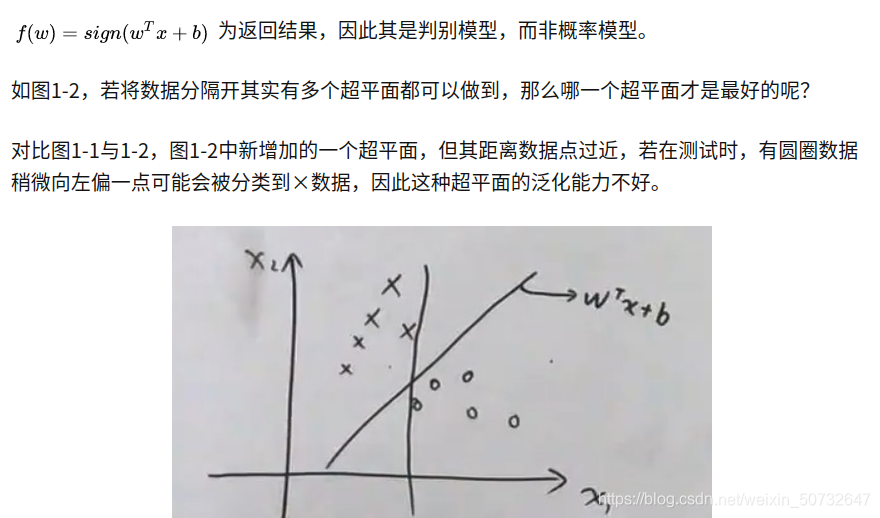 f(w) = sign(wᵀx + b) 为返回结果，因此其是判别模型，而非概率模型。
如图1-2，若将数据分隔开其实有多个超平面都可以做到，那么哪一个超平面才是最好的呢？
对比图1-1与1-2，图1-2中新增加的一个超平面，但其距离数据点过近，若在测试时，有圆圈数据
稍微向左偏一点可能会被分类到×数据，因此这种超平面的泛化能力不好。
x₂
wᵀx+b
x₁
https://blog.csdn.net/weixin_50732647